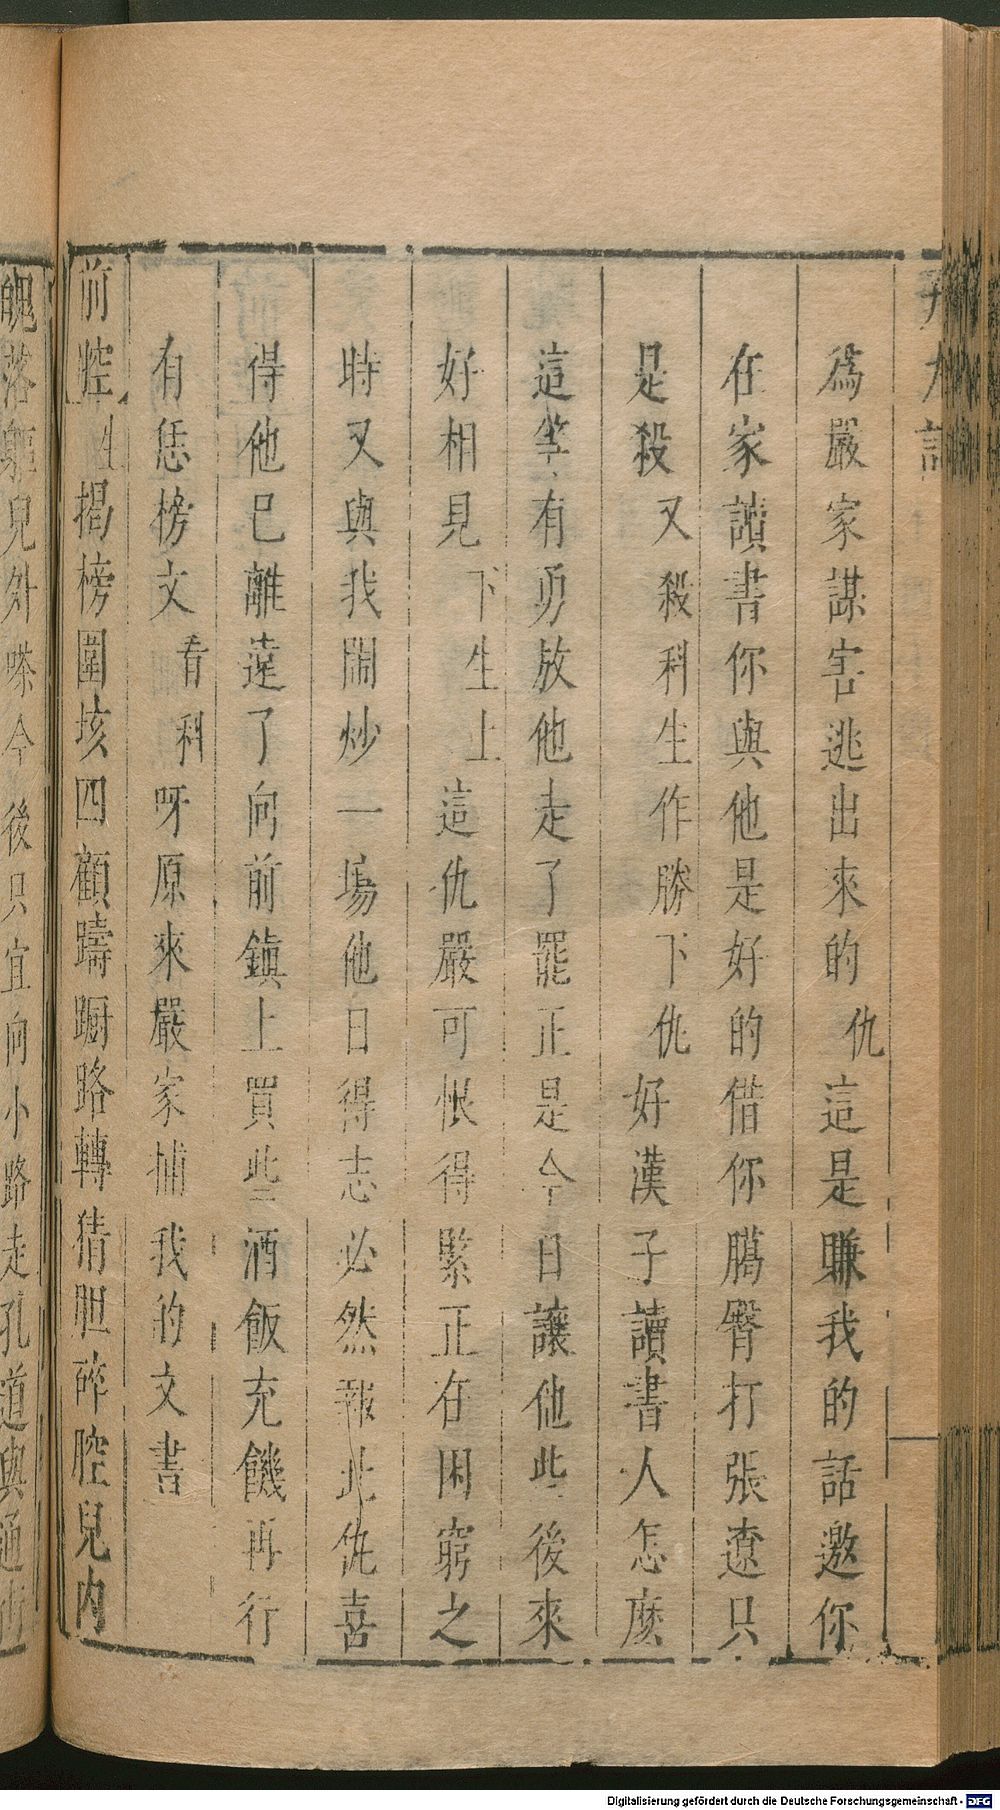 為嚴家謀害逃出來的仇這是賺我的話邀你
在家讀書你與他是好的借你臈臀打張遼只
是殺又殺科生作勝下仇好漢子讀書人怎麽
這等有勇放他走了罷正是今日讓他此後來
好相見下生上這仇嚴可恨得緊正在困窮之
時又與我鬧炒一場他日得志必然報此仇喜
得他已離遠了向前鎮上買些酒飯充饑再行
有恁榜文看科呀原來嚴家捕我的文書
前腔生揭榜圍垓四顧躊蹰路轉猜胆碎腔兒內
魄落軀兒外嗏今後只宜向小路走孔道與通
Digitalisierung gefördert durch die Deutsche Forschungsgemeinschaft - DFG